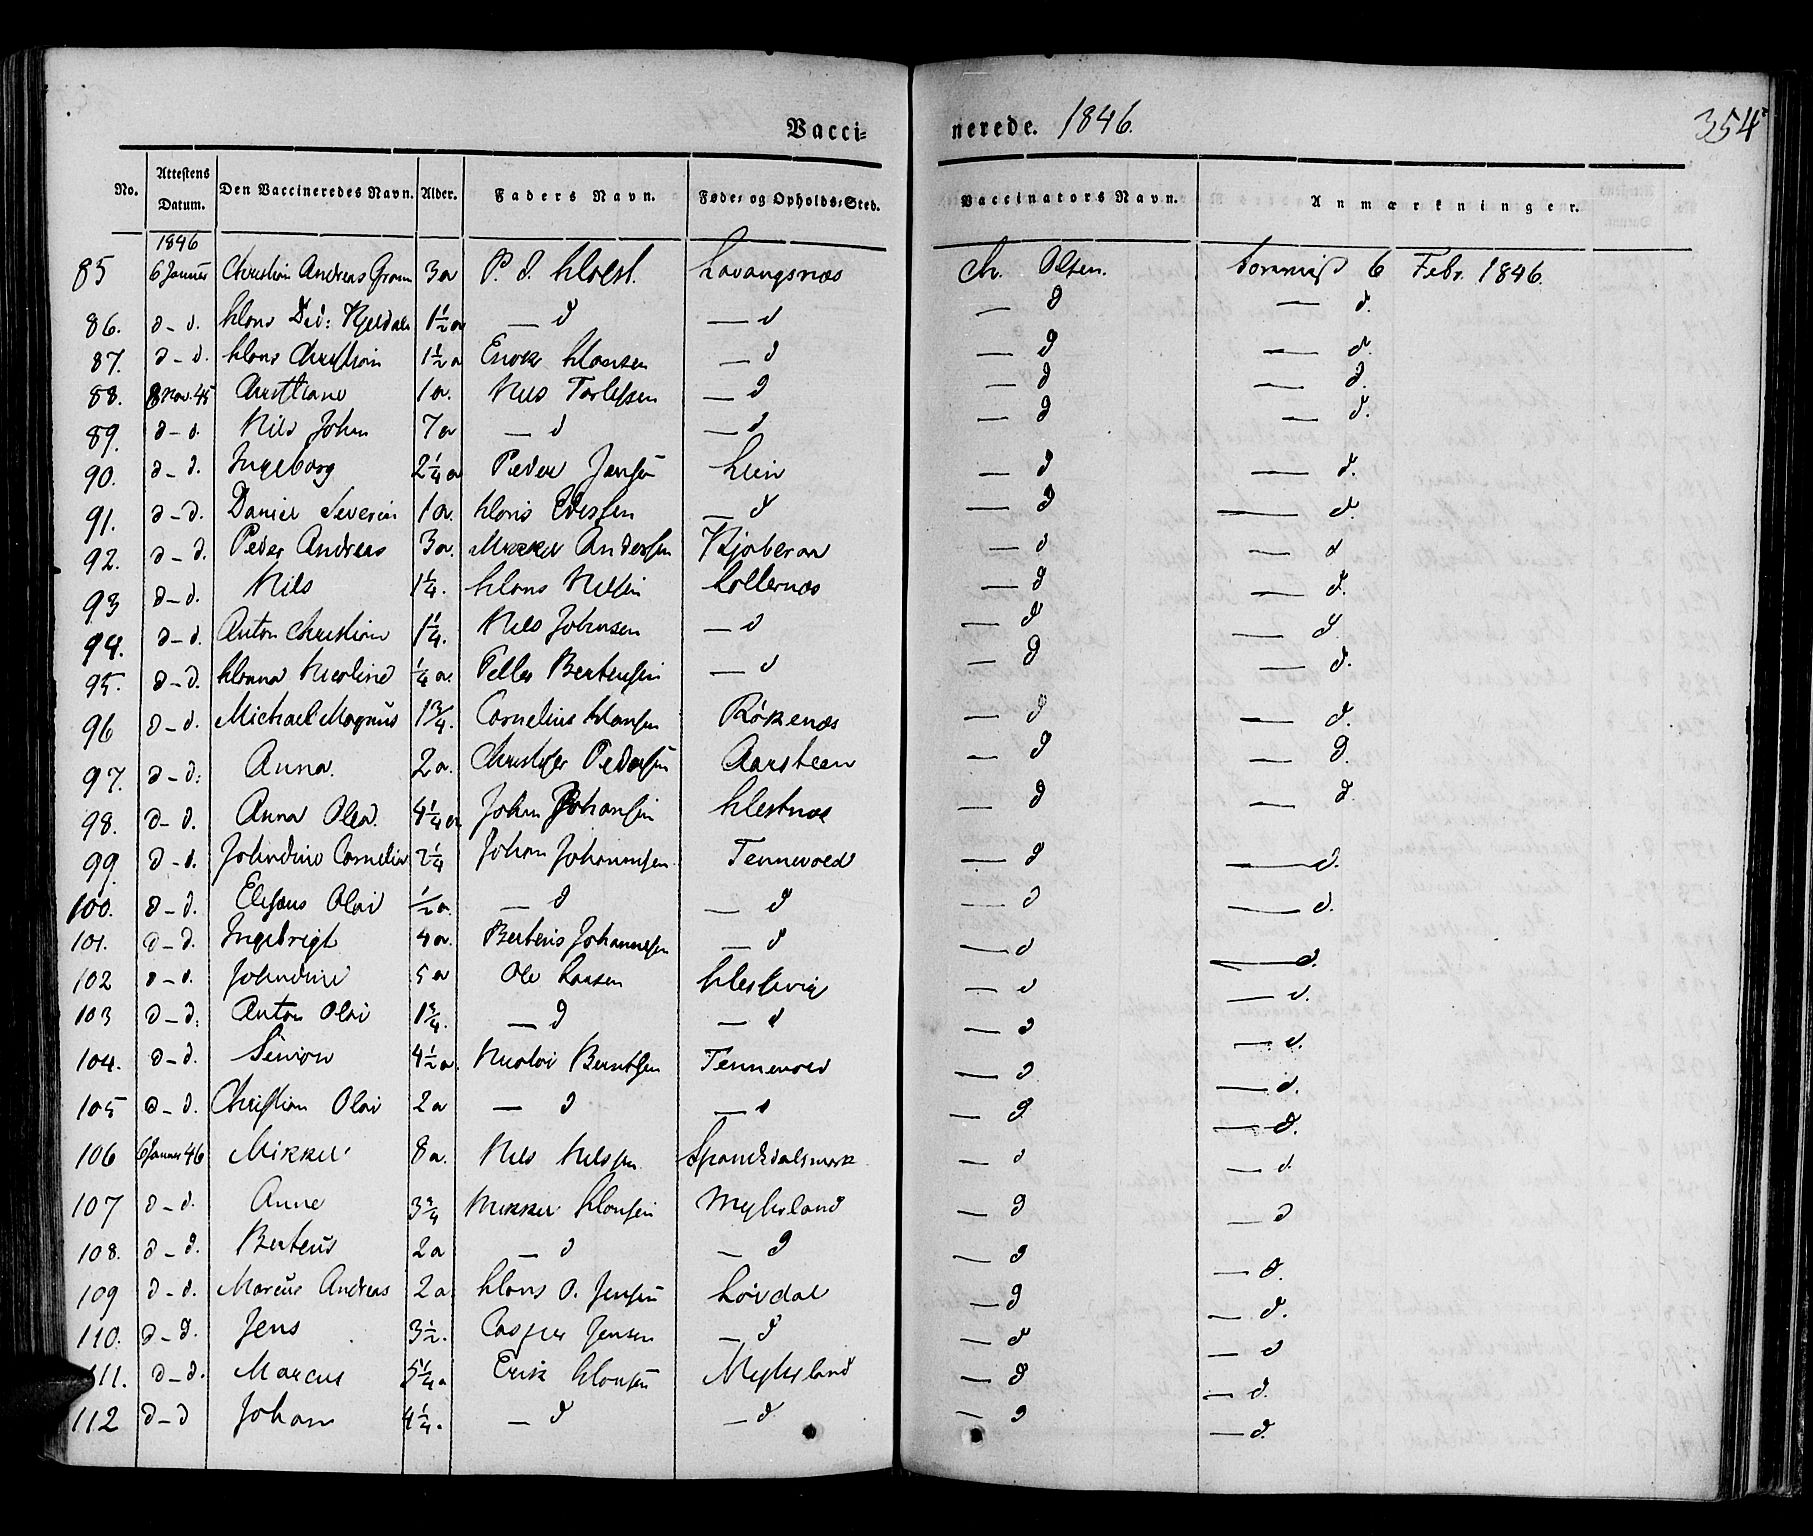 Vacci= nerede. 1846. 354
No. Attestens Datum. Den Vaccineredes Navn. Alder. Faders Navn. Føde- og Opholds-Sted. Vaccinators Navn. Anmærkninger.
1846
85 6 Januar Christian Andreas Grom 3 a P. D. Holst. Lavangsnæs Ch. Olsen. 6 Febr. 1846.
86. d - d. Hans Did: Kjeldal 1½ a — d — d — d — d.
87. d - d. Hans Christian 1½ a Enok Hansen — d — d — d.
88. 8 Nov. 45 Christiane 1 a. Nils Tarlessen — d — d — d.
89. d - d. Nils Johan 7 a — d — d — d — d.
90. d - d. Ingeborg 2¼ a Peder Jensen — d — d.
91. d - d. Daniel Severin 1 a. Hans — d — d — d.
92. d - d. Peder Andreas 3 a. Mikkel Anderssen — d — d
93 d - d. Nils 1¼. Hans Nilsen — d — d.
94. d - d. Anton Christian 1¼. Nils Johnsen — d — d — d
95. d - d. Hanna Nicoline ¼ a. Peller Berteusen — d — d — d.
96 d - d. Michael Magnus 1¾. Cornelius Hansen Rökenæs — d — d.
97. d - d. Anna. 2 a. Christofer Pedersen Aarsteen — d — d.
98. d - d. Anna Olea. 4¼ a John Johansen Hestnæs — d — d.
99. d - d. Johndine Cornelia 2¼ Johan Johannesen Tennevold — d — d.
100. d - d. Eleseus Olai ½ a. — d — d — d — d.
101. d - d. Ingebrigt 4 a. Berteus Johannesen — d — d — d.
102 d - d. Johndine 5 a Ole Larsen — d — d.
103 d - d. Anton Olai 1¾. — d — d — d — d.
104. d - d. Simon 4½ a. Nicolai Berntsen Tennevold — d — d.
105 d - d. Christian Olai 2 a — d — d — d — d.
106 6 Januar 46 Mikkel 8 a. Nils Nilssen Spansdalsmark — d — d.
107 d - d. Anne 3¾ Mikkel Hansen Myhrland — d — d
108. d - d. Berteus 2 a — d — d — d — d.
109 d - d. Marcus Andreas 2 a Hans O. Jensen Lövdal — d — d.
110. d - d. Jens 3½. Casper Jensen — d — d — d
111. d - d. Marcus 5¼ a Erik Hansen Myhrland — d — d.
112 d - d Johan 4¼. — d — d — d — d.